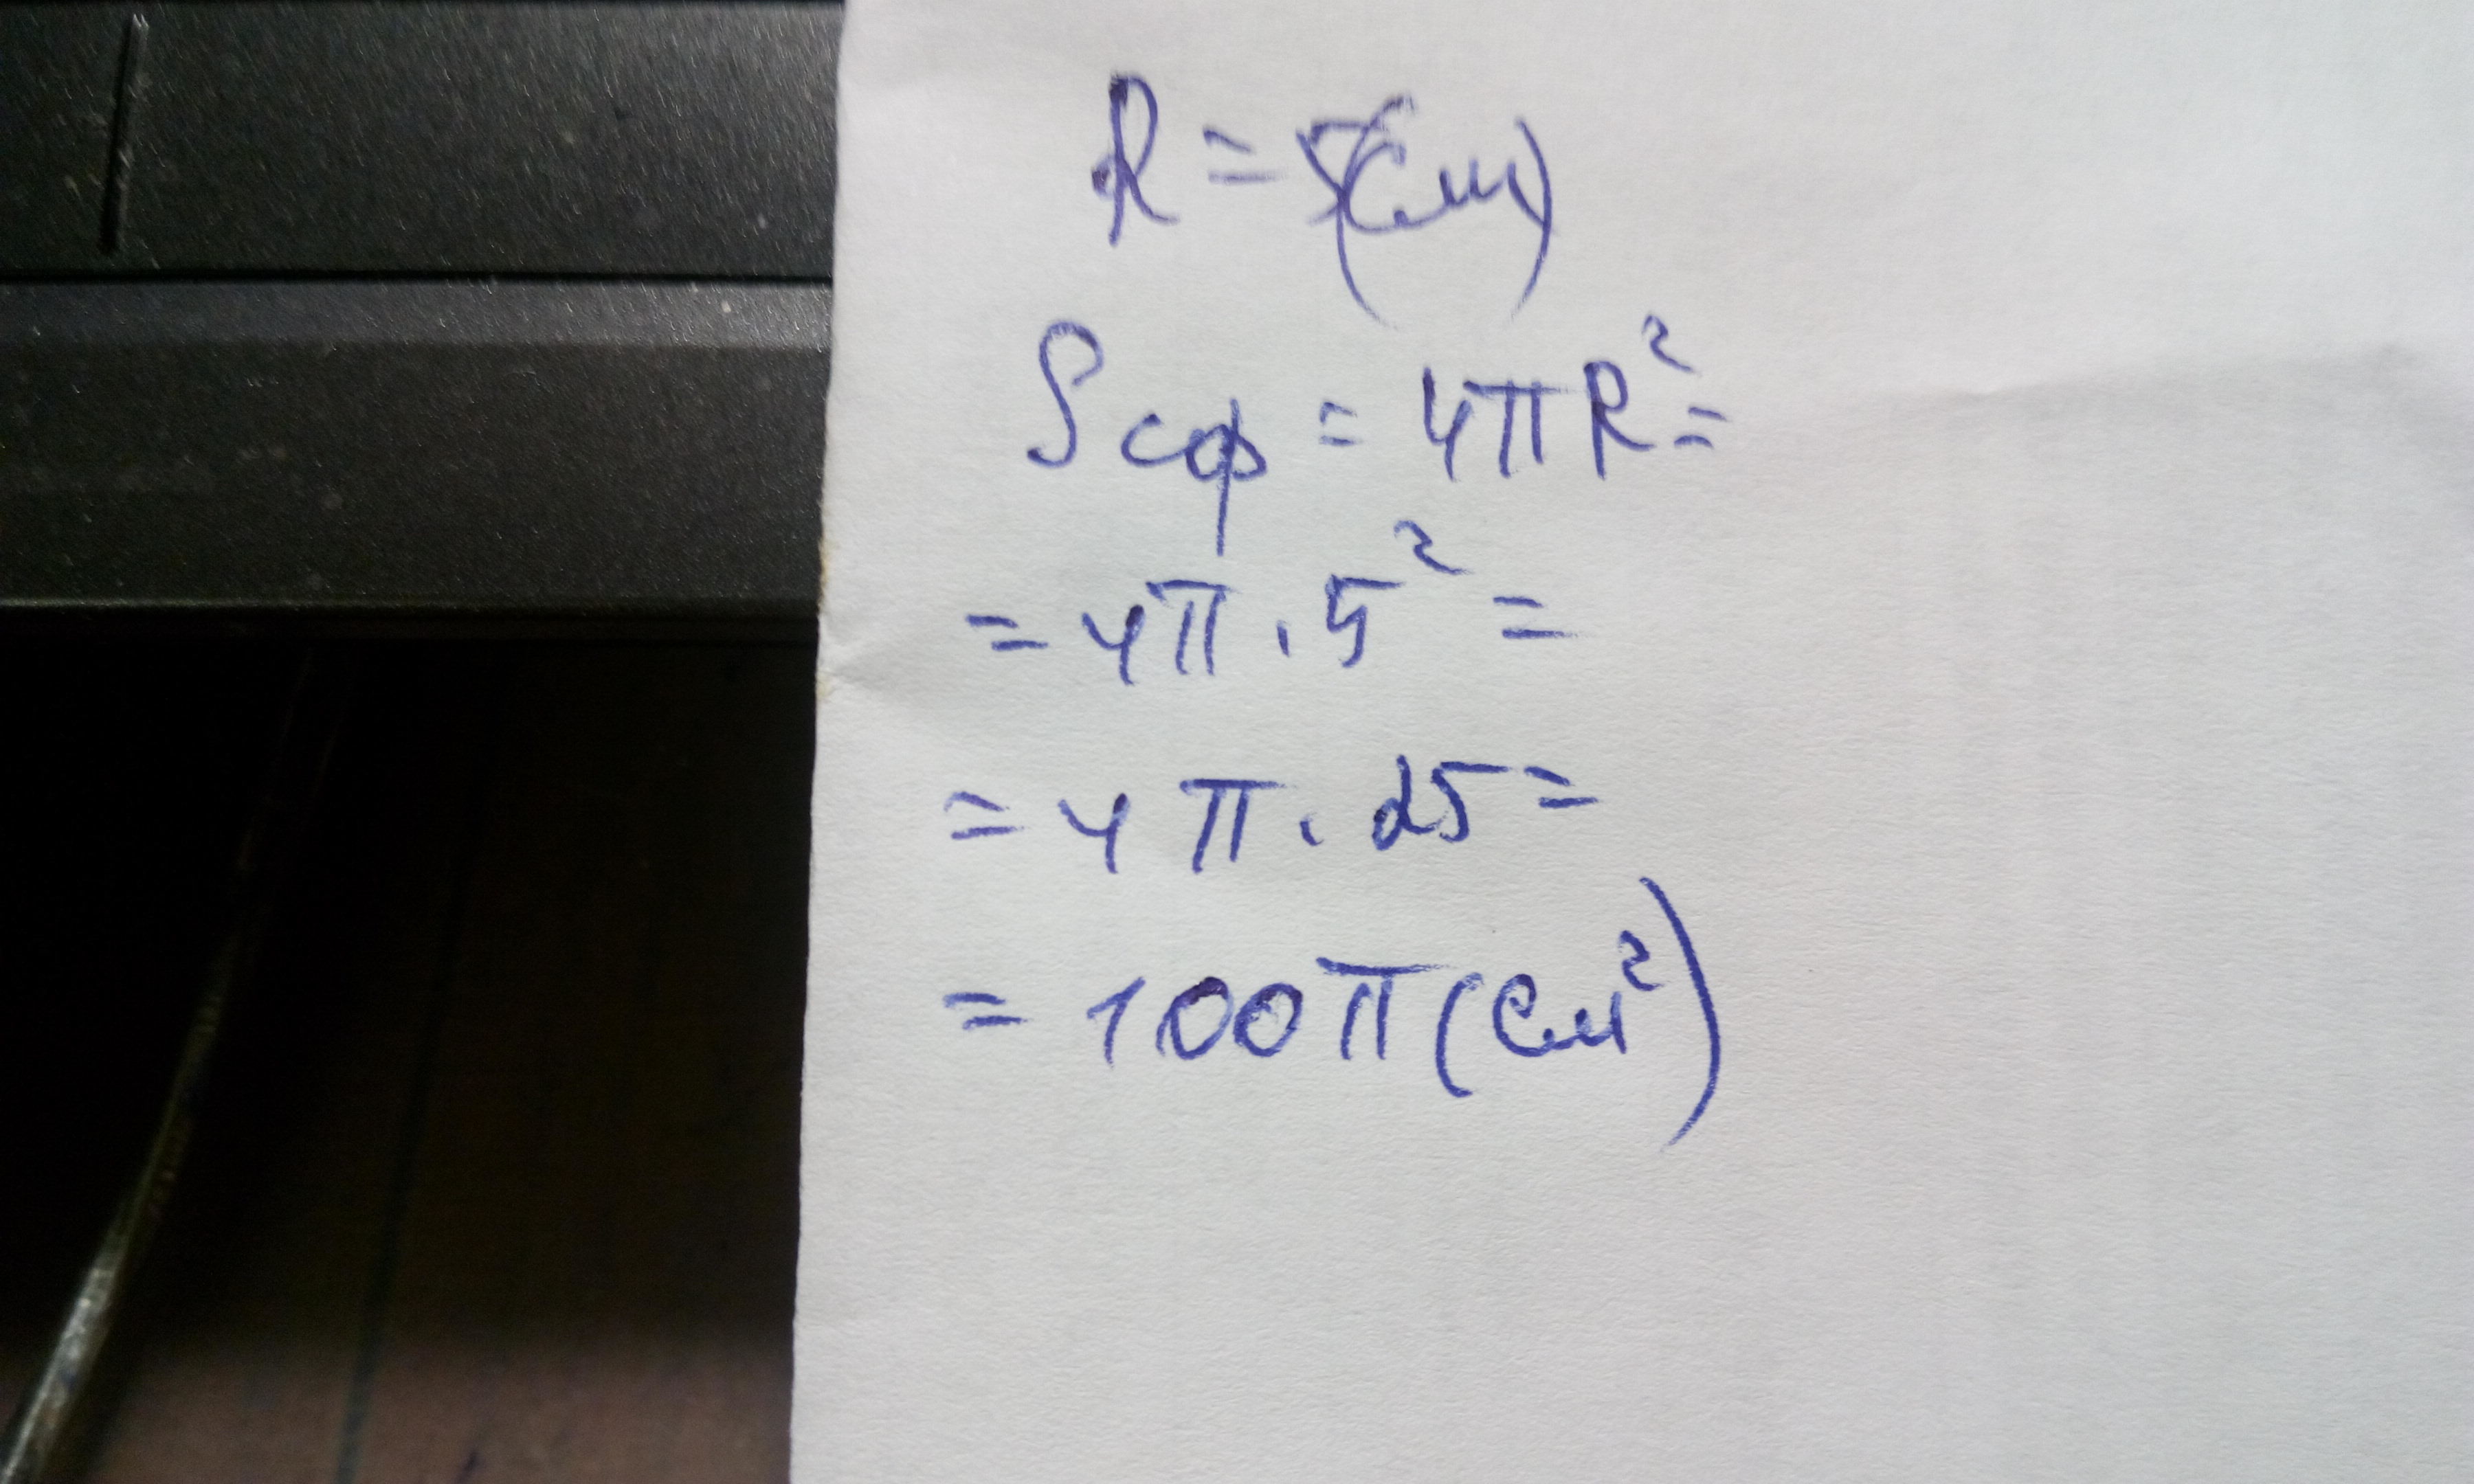 R = 5(см)
Sсф = 4πR²=
= 4π · 5² =
= 4π · 25 =
= 100π (см²)